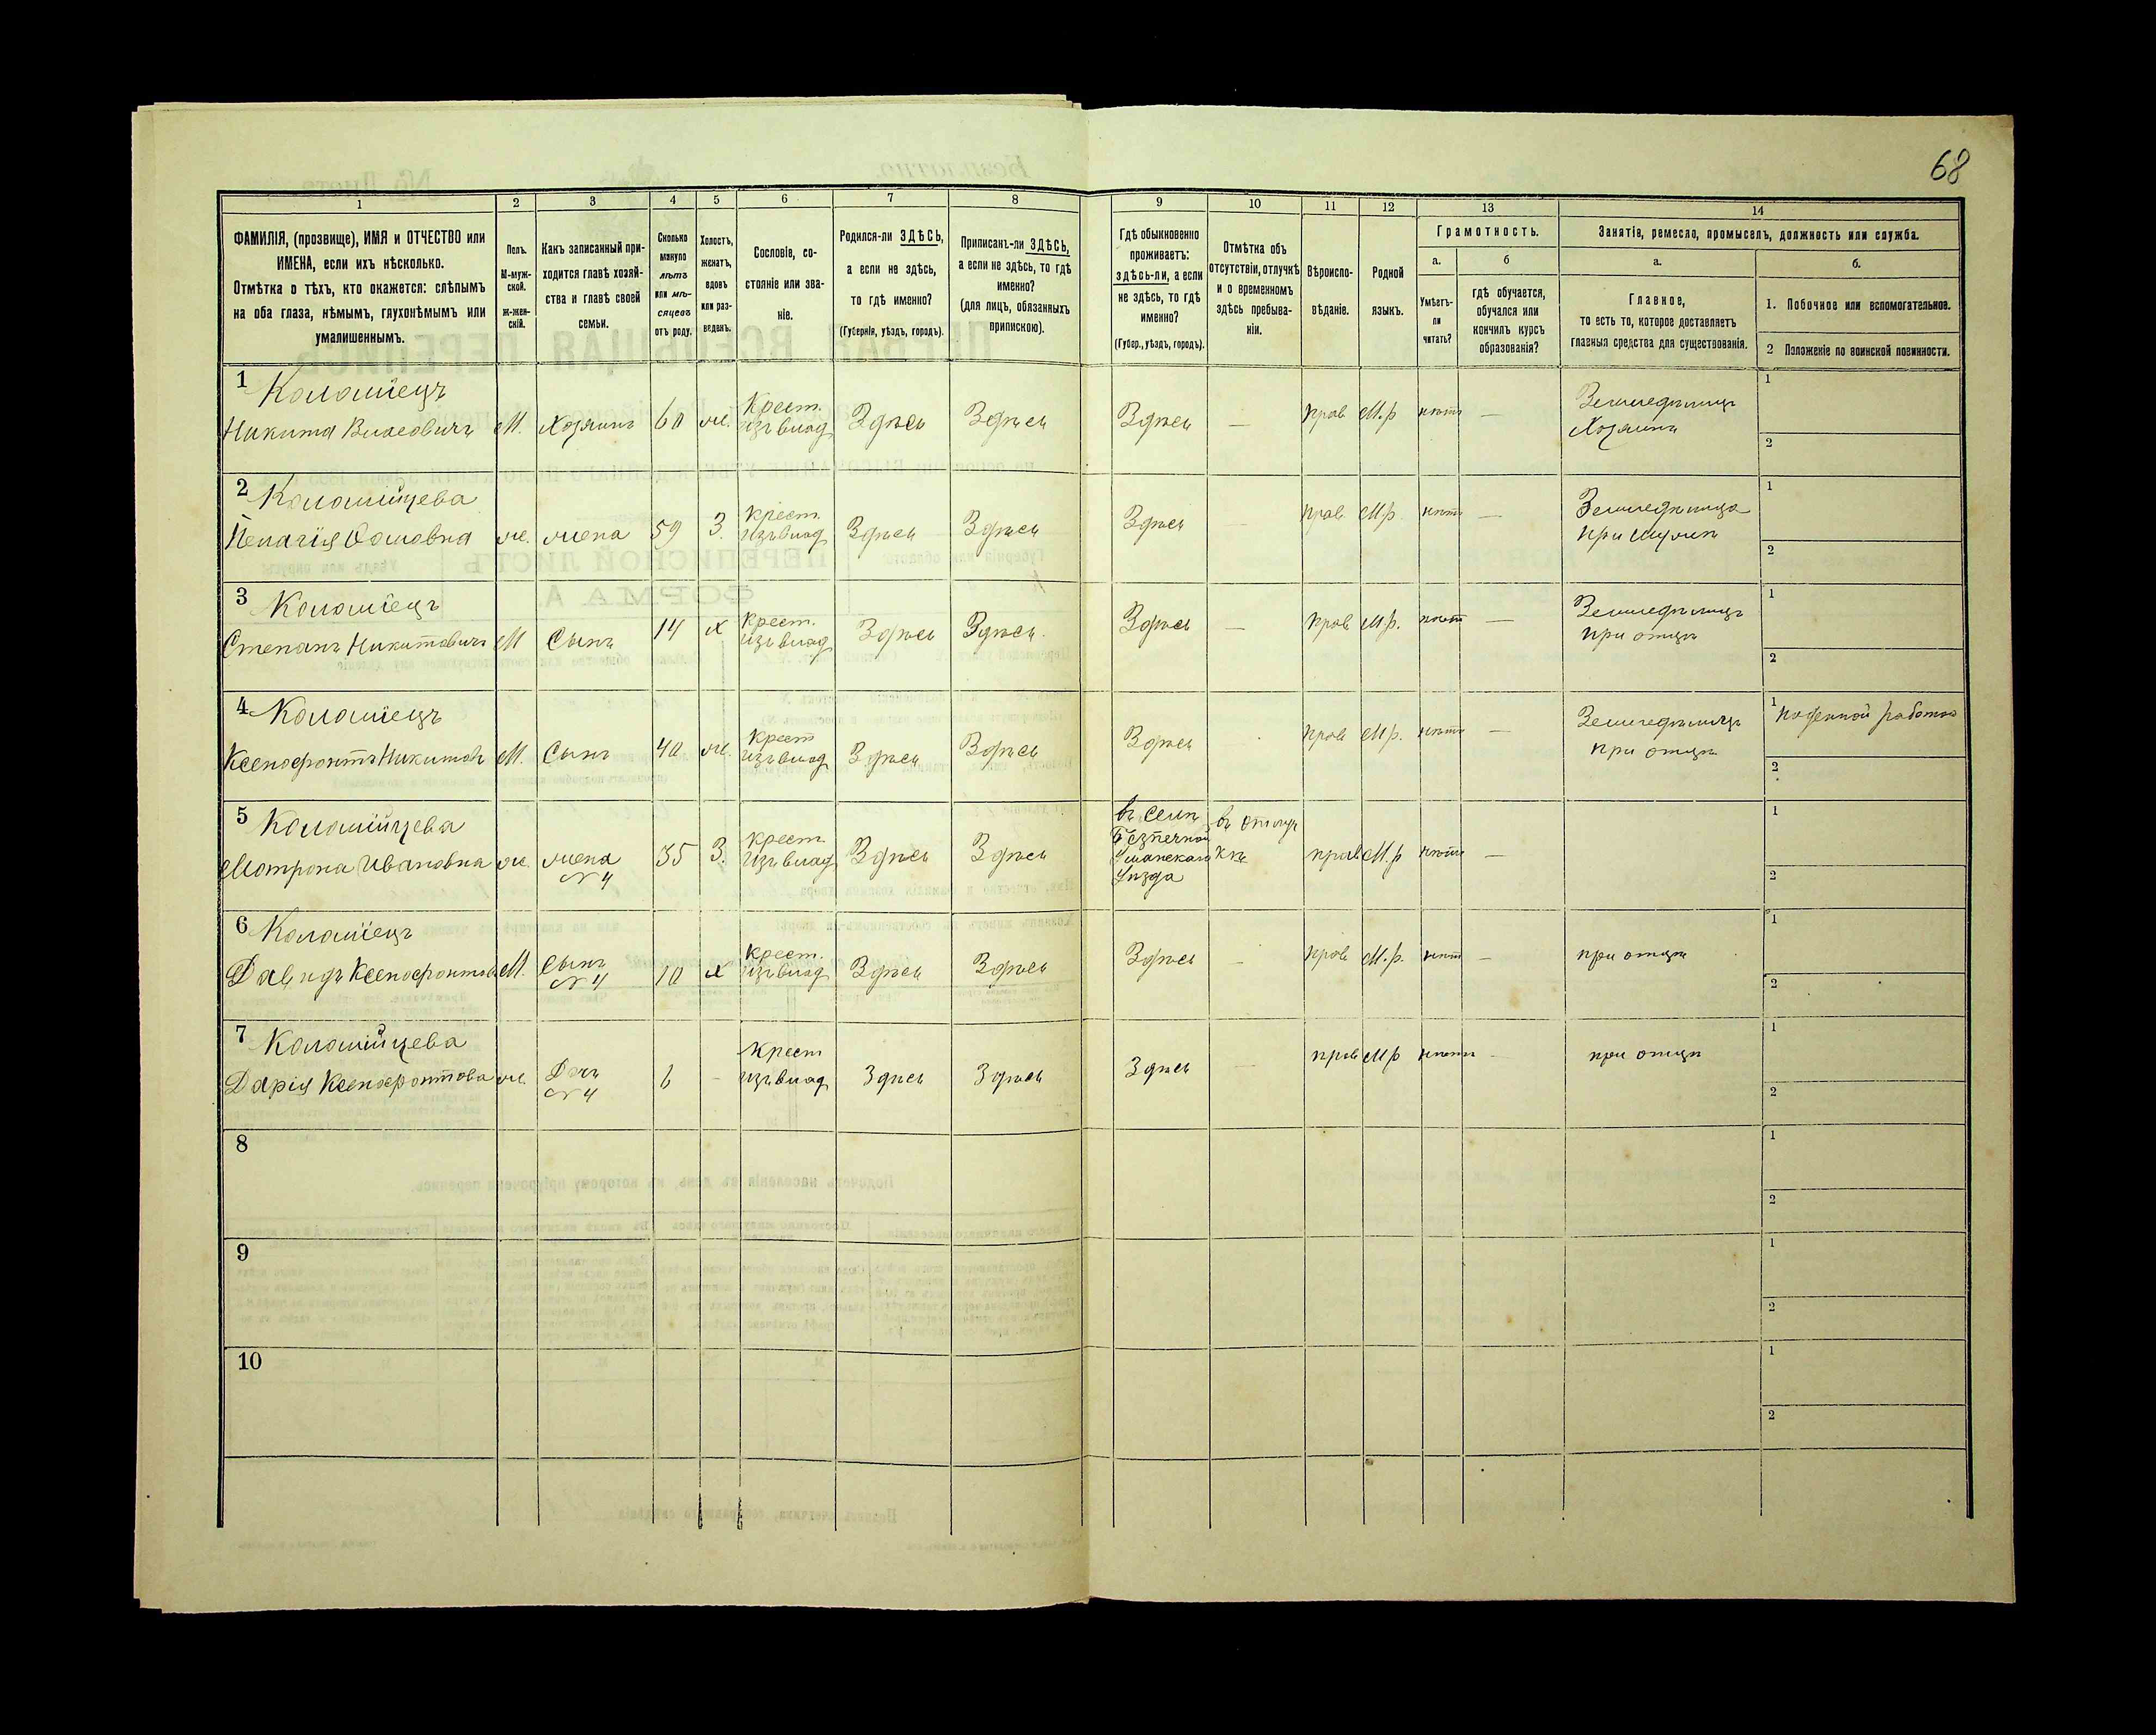 68
1 2 3 4 5 6 7 8 9 10 11 12 13 14
ФАМИЛІЯ, (прозвище), ИМЯ и ОТЧЕСТВО или
ИМЕНА, если ихъ нѣсколько.
Отмѣтка о тѣхъ, кто окажется: слѣпымъ
на оба глаза, нѣмымъ, глухонѣмымъ или
умалишеннымъ.
Полъ.
М-муж-
ской.
Ж-жен-
скій.
Какъ записанный при-
ходится главѣ хозяй-
ства и главѣ своей
семьи.
Сколько
минуло
лѣтъ
или мѣ-
сяцевъ
отъ роду.
Холостъ,
женатъ,
вдовъ
или раз-
веденъ.
Сословіе, со-
стояніе или зва-
ніе.
Родился-ли ЗДѢСЬ,
а если не здѣсь,
то гдѣ именно?
(Губернія, уѣздъ, городъ).
Приписанъ-ли ЗДѢСЬ,
а если не здѣсь, то гдѣ
именно?
(для лицъ, обязанныхъ
припискою).
Гдѣ обыкновенно
проживаетъ:
здѣсь-ли, а если
не здѣсь, то гдѣ
именно?
(Губер., уѣздъ, городъ).
Отмѣтка объ
отсутствіи, отлучкѣ
и о временномъ
здѣсь пребыва-
ніи.
Вѣроиспо-
вѣданіе.
Родной
языкъ.
Грамотность.
а.
Умѣетъ-
ли
читать?
б
гдѣ обучается,
обучался или
кончилъ курсъ
образованія?
Занятіе, ремесло, промыселъ, должность или служба.
а.
Главное,
то есть то, которое доставляетъ
главныя средства для существованія.
б.
1. Побочное или вспомогательное.
2 Положеніе по воинской повинности.
1 Коломіецъ
Никита М. Хозяинъ 60 ж. Крест. изъ влад Здѣсь Здѣсь Здѣсь — прав М.р нѣтъ — Земледѣлецъ
Хозяинъ
1
2
2 Коломійцева
Пелагія ж. жена 59 З. крест. изъ влад Здѣсь Здѣсь Здѣсь — прав М.р нѣтъ — Земледѣлица
при мужѣ
1
2
3 Коломіецъ
Степанъ Никитовичъ М Сынъ 14 х Крест. изъ влад Здѣсь Здѣсь. Здѣсь — прав М.р. нѣтъ — Земледѣлецъ
при отцѣ
1
2
4 Коломіецъ
Ксенофонтъ Никитовъ М. Сынъ 40 ж. Крест изъ влад Здѣсь Здѣсь Здѣсь прав М.р. нѣтъ — Земледѣлецъ
при отцѣ
1 Поденной работой
2
5 Коломійцева
Матрона Ивановна ж. жена
№ 4
35 З. крест. изъ влад Здѣсь Здѣсь
въ селѣ
Безпечной
Уманскаго
Уѣзда
въ отлуч
кѣ
прав М.р нѣтъ —
1
2
6 Коломіецъ
Давидъ Ксенофонтов М. Сынъ
№ 4
10 х Крест. изъ влад Здѣсь Здѣсь Здѣсь — прав М.р. нѣтъ — при отцѣ
1
2
7 Коломійцева
Дарія Ксенофонтова ж. Дочь
№ 4
6 — Крест изъ влад Здѣсь Здѣсь Здѣсь — прав М.р нѣтъ — при отцѣ
1
2
8
1
2
9
1
2
10
1
2